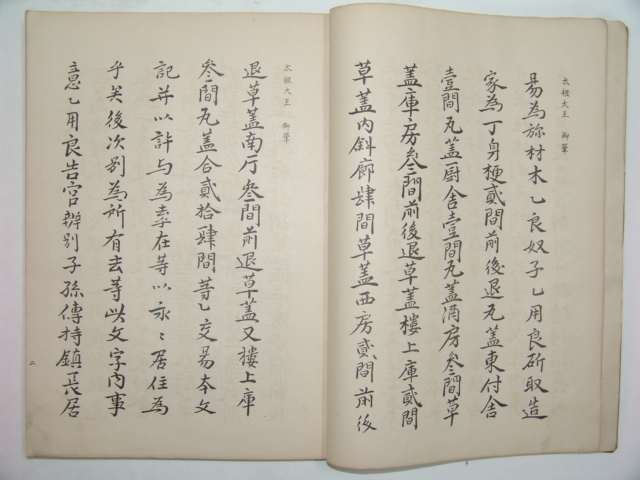 太祖大王 御筆
易為旀材木乙良奴子乙用良斫取造
家為丁身梗貳間前後退瓦盖東付舍
壹間瓦盖厨舍壹間瓦盖酒房叅間草
盖庫房叅間前後退草盖樓上庫貳間
草盖內斜廊肆間草盖西房貳間前後
太祖大王 御筆
退草盖南厅叅間前退草盖又樓上庫
叅間瓦盖合貳拾肆間等乙交易本文
記并以許与為去在等以永〻居住為
乎矣後次別為所有去等此文字內事
意乙用良告官辨別子孫傳持鎮長居
二